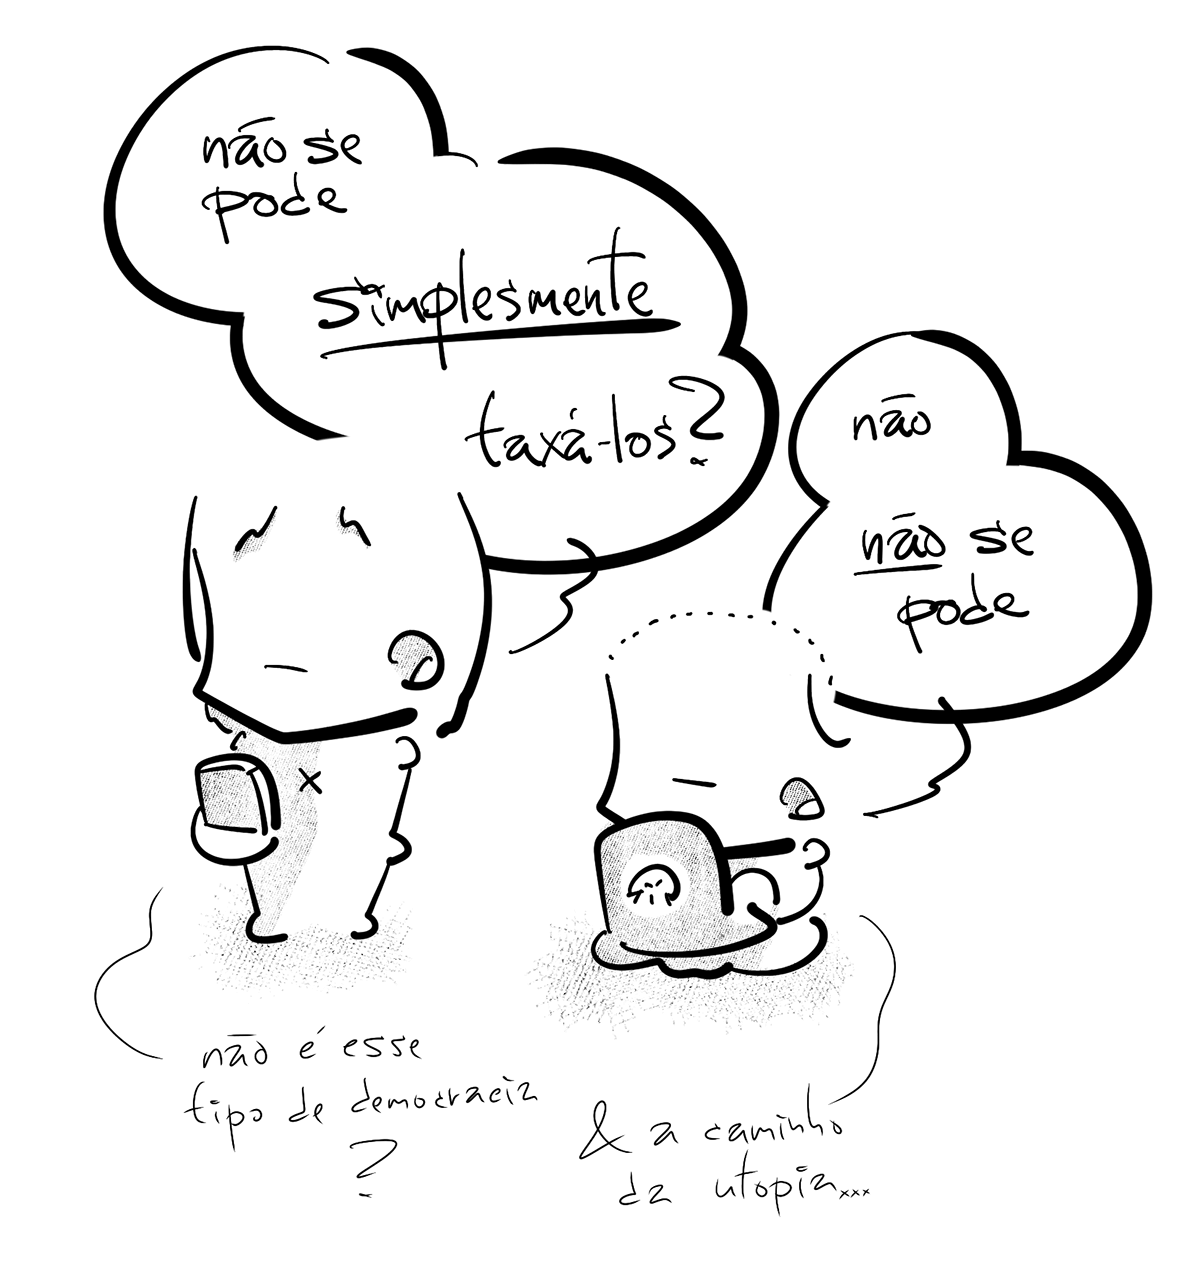 não se
pode
simplesmente
taxá-los?
não
não se
pode
não é esse
tipo de democracia
?
& a caminho
da utopia...